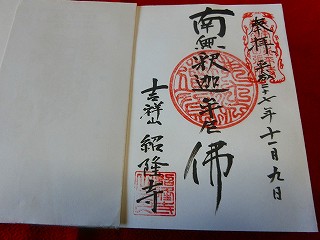 奉拝 平成二十七年十一月九日
南無釈迦牟尼佛
吉祥山 紹隆寺